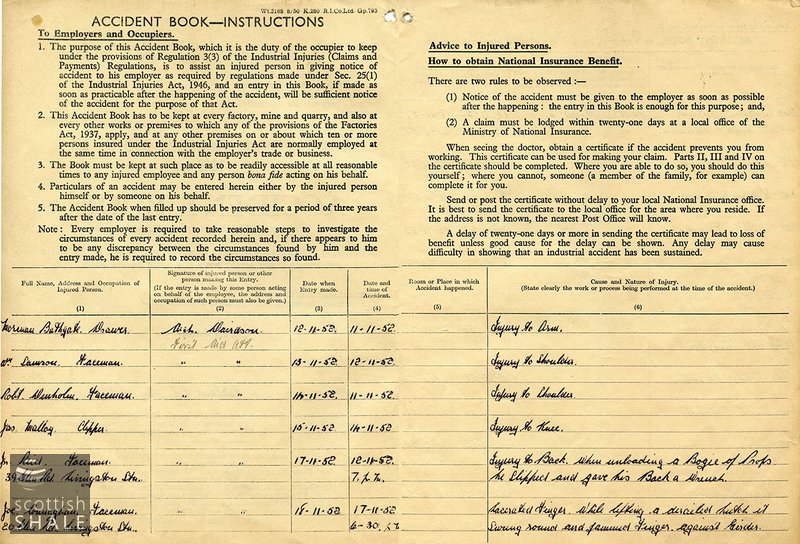 Wt.3168 8/50 K.280 R.I.Co.Ltd. Gp.793
ACCIDENT BOOK—INSTRUCTIONS
To Employers and Occupiers.
1. The purpose of this Accident Book, which it is the duty of the occupier to keep
under the provisions of Regulation 3(3) of the Industrial Injuries (Claims and
Payments) Regulations, is to assist an injured person in giving notice of
accident to his employer as required by regulations made under Sec. 25(1)
of the Industrial Injuries Act, 1946, and an entry in this Book, if made as
soon as practicable after the happening of the accident, will be sufficient notice
of the accident for the purpose of that Act.
2. This Accident Book has to be kept at every factory, mine and quarry, and also at
every other works or premises to which any of the provisions of the Factories
Act, 1937, apply, and at any other premises on or about which ten or more
persons insured under the Industrial Injuries Act are normally employed at
the same time in connection with the employer's trade or business.
3. The Book must be kept at such place as to be readily accessible at all reasonable
times to any injured employee and any person bona fide acting on his behalf.
4. Particulars of an accident may be entered herein either by the injured person
himself or by someone on his behalf.
5. The Accident Book when filled up should be preserved for a period of three years
after the date of the last entry.
Note: Every employer is required to take reasonable steps to investigate the
circumstances of every accident recorded herein and, if there appears to him
to be any discrepancy between the circumstances found by him and the
entry made, he is required to record the circumstances so found.
Advice to Injured Persons.
How to obtain National Insurance Benefit.
There are two rules to be observed :—
(1) Notice of the accident must be given to the employer as soon as possible
after the happening : the entry in this Book is enough for this purpose; and,
(2) A claim must be lodged within twenty-one days at a local office of the
Ministry of National Insurance.
When seeing the doctor, obtain a certificate if the accident prevents you from
working. This certificate can be used for making your claim. Parts II, III and IV on
the certificate should be completed. Where you are able to do so, you should do this
yourself; where you cannot, someone (a member of the family, for example) can
complete it for you.
Send or post the certificate without delay to your local National Insurance office.
It is best to send the certificate to the local office for the area where you reside. If
the address is not known, the nearest Post Office will know.
A delay of twenty-one days or more in sending the certificate may lead to loss of
benefit unless good cause for the delay can be shown. Any delay may cause
difficulty in showing that an industrial accident has been sustained.
Full Name, Address and Occupation of
Injured Person.
(1)
Signature of injured person or other
person making this Entry.
(If the entry is made by some person acting
on behalf of the employee, the address and
occupation of such person must also be given.)
(2)
Date when
Entry made.
(3)
Date and
time of
Accident.
(4)
Room or Place in which
Accident happened.
(5)
Cause and Nature of Injury.
(State clearly the work or process being performed at the time of the accident.)
(6)
Norman Bathgate Drawer Davidson. 12-11-52. 11-11-52. Injury to Arm.
First Aid Att.
Wm Samson. Faceman. " " 13-11-52. 12-11-52. Injury to Shoulder.
Robt Denholm, Faceman. " " 14-11-52. 11-11-52. Injury to Shoulder.
Jas Malloy. Clipper. " " 15-11-52. 14-11-52. Injury to Knee.
Reid. Faceman. " " 17-11-52. 12-11-52. Injury to Back. When unloading a Bogie of Props
39 Livingston Stn. 7. he Slipped and gave his Back a Wrench.
Joe Faceman. " " 18-11-52 17-11-52 Lacerated Finger. While lifting a derailed hutch it
20 Livingston Stn. 6-30. Swung round and jammed Finger against Girder.
scottish
SHALE